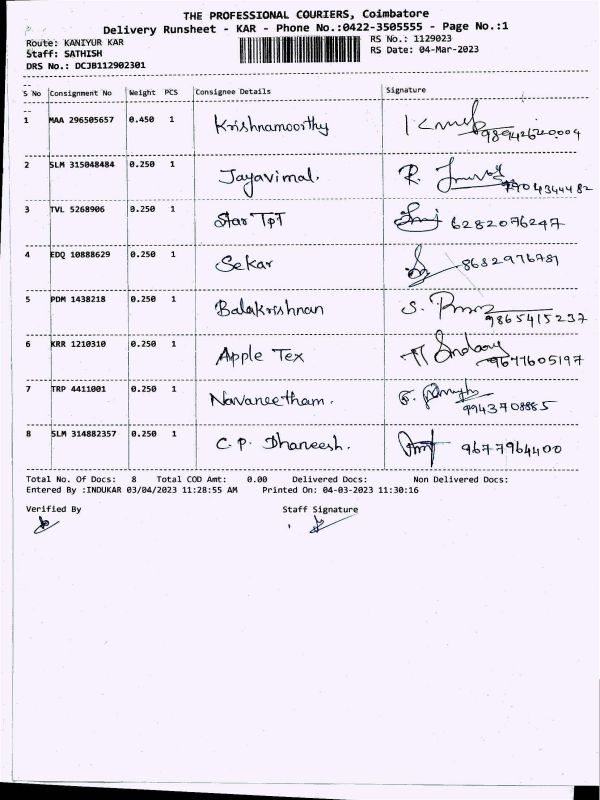 THE PROFESSIONAL COURIERS, Coimbatore
Delivery Runsheet - KAR - Phone No.:0422-3505555 - Page No.:1
Route: KANIYUR KAR
RS No.: 1129023
Staff: SATHISH
RS Date: 04-Mar-2023
DRS No.: DCJB112902301
S No Consignment No Weight PCS Consignee Details Signature
1 MAA 296505657 0.450 1 Krishnamoorthy
2 SLM 315048484 0.250 1 Jayavimal. R.
3 TVL 5268906 0.250 1 Star TPT 6282076247
4 EDQ 10888629 0.250 1 Sekar
5 PDM 1438218 0.250 1 Balakrishnan S. 9865415237
6 KRR 1210310 0.250 1 Apple Tex 9677605197
7 TRP 4411001 0.250 1 Navaneetham. 9943708885
8 SLM 314882357 0.250 1 C.P. Dhaneesh. 9677964400
Total No. Of Docs: 8 Total COD Amt: 0.00 Delivered Docs: Non Delivered Docs:
Entered By :INDUKAR 03/04/2023 11:28:55 AM Printed On: 04-03-2023 11:30:16
Verified By Staff Signature